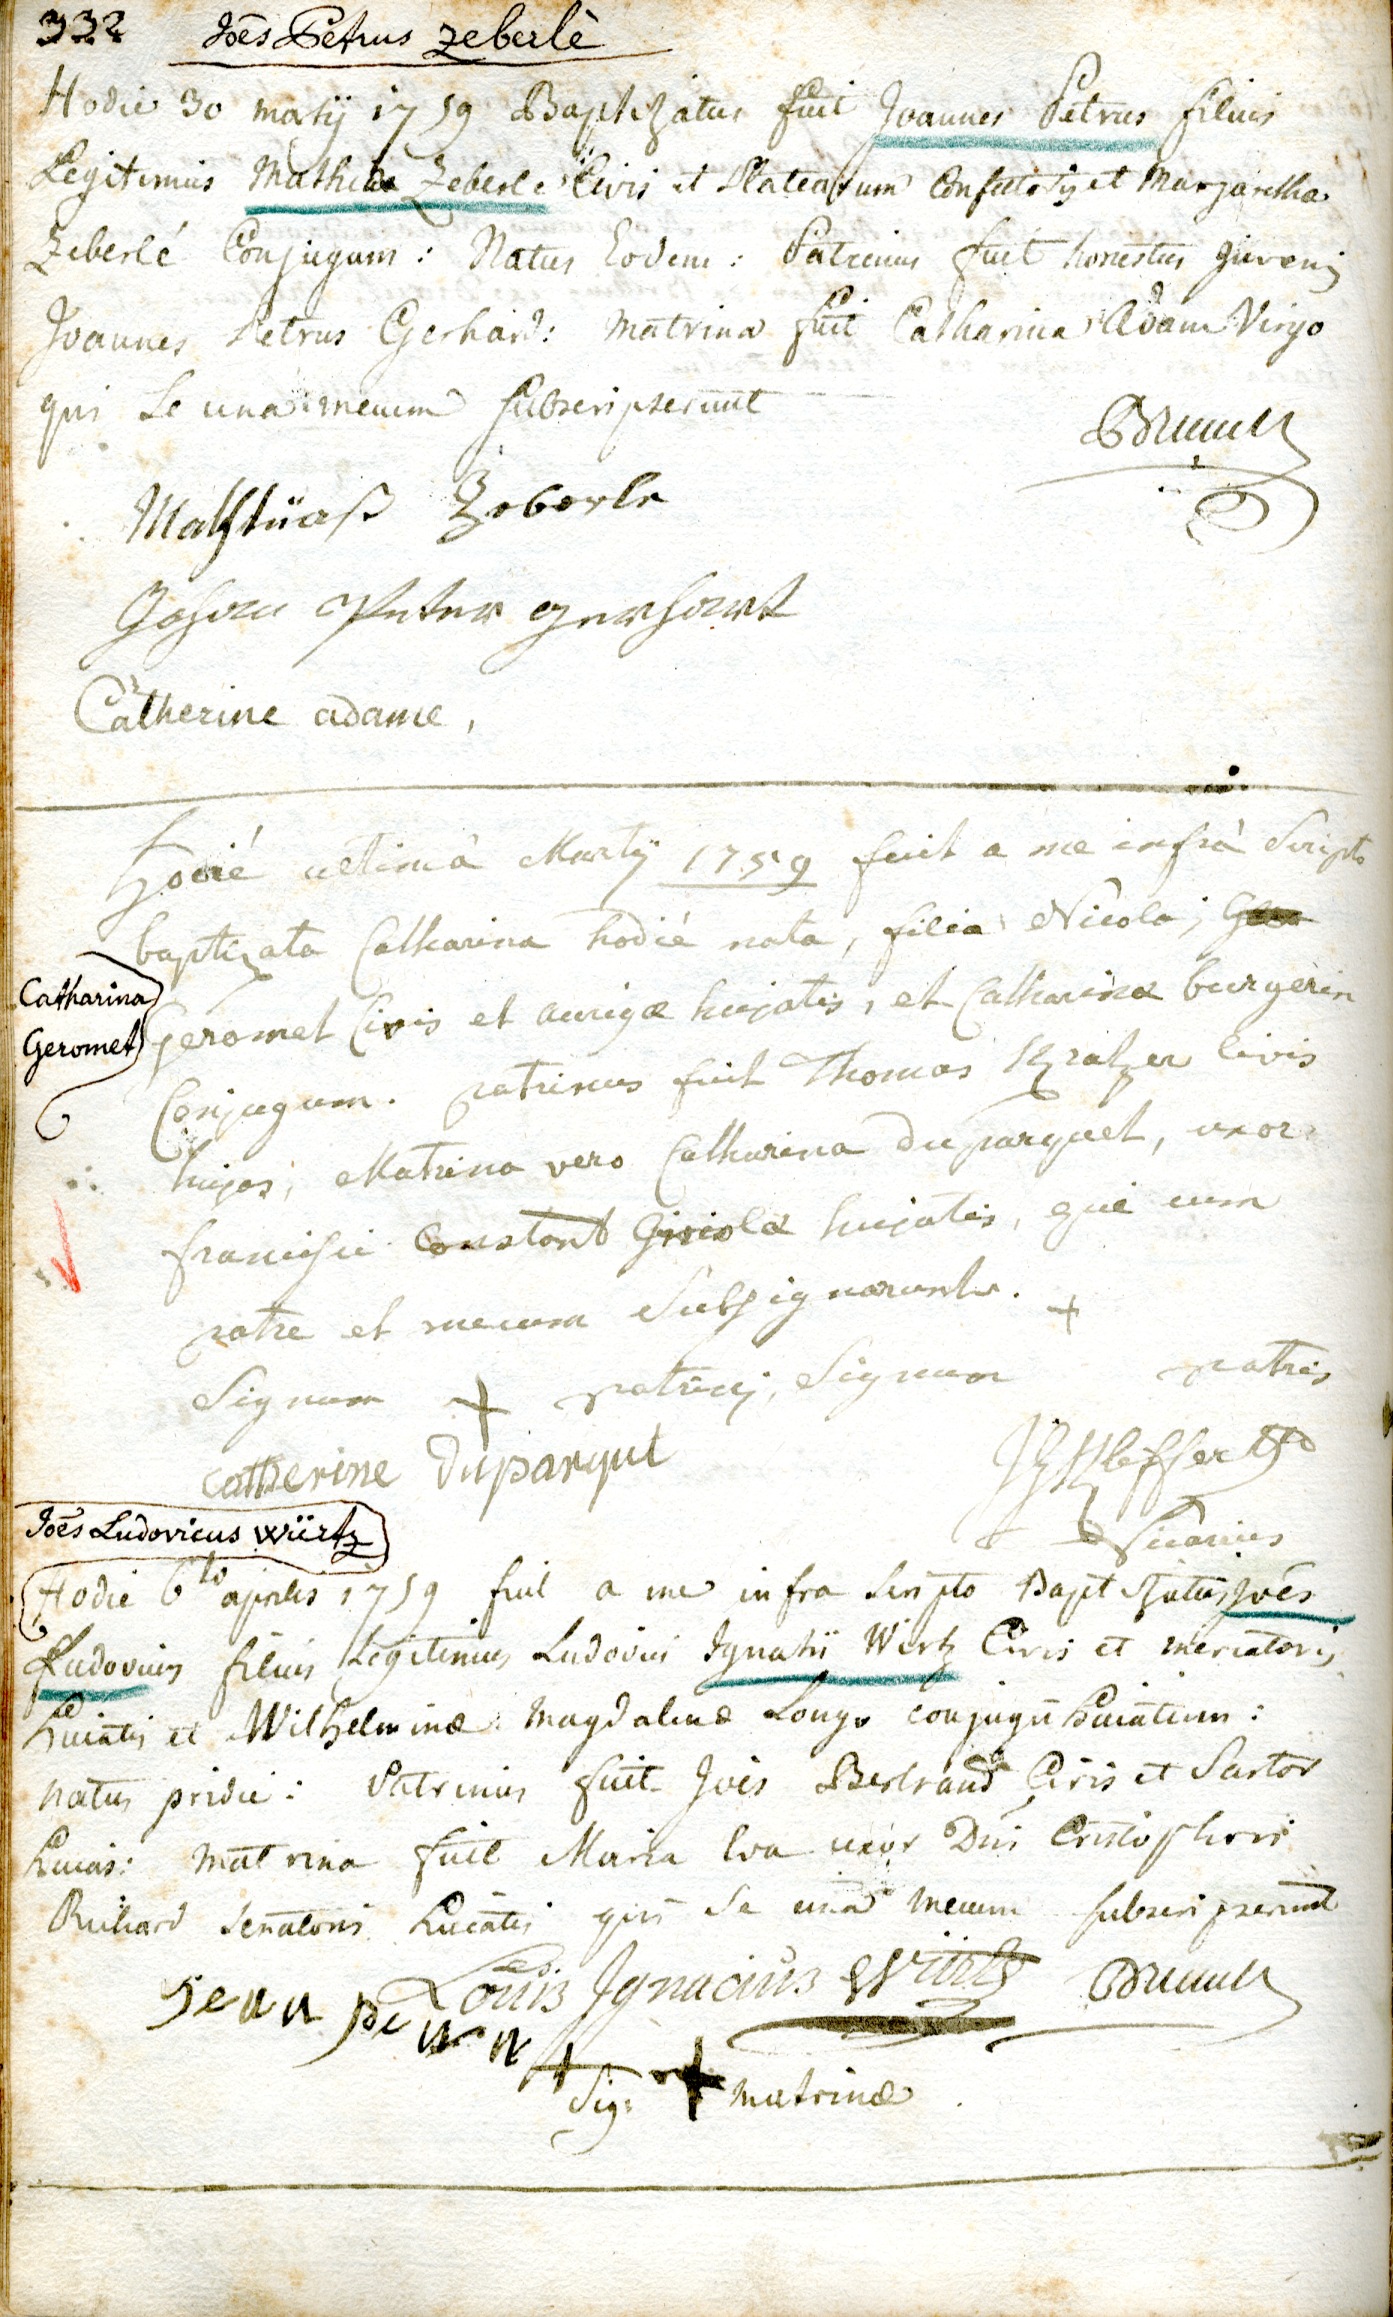 332 Joēs Petrus Zeberlè
Hodie 30 martij 1759 Baptizatus fuit Joannes Petrus filius
Legitimus Mathiæ Zeberle Civis et Platearum et Margaretha
Zeberlé Conjugum: Natus Eodem: Patrinus fuit honestus juvenis
Joannes Petrus Gerhard: Matrina fuit Catharina Adam Virgo
qui se una mecum subscripserunt
Mathiaß Zeberle
Johan Peter gerhart
Catherine adame,
Hodié ultimâ Martij 1759 fuit a me infrà Scripto
baptizata Catharina hodié nata, filia Nicolai
Catharina
Geromet
geromet Civis et aurigæ hujatis, et Catharinæ burgerin
Conjugum. patrinus fuit Thomas Kratzer Civis
hujas, Matrina vero Catharina duparquet, uxor
francisci Constant hujatis, qui cum
patre et mecum Subsignarunt.
Signum + patrinj, Signum + patris
catherine duparqut
Vicarius
Joēs Ludovicus Würtz
Hodie 6to aprilis 1759 fuit a me infra scripto Baptizatus Joēs
Ludovicus filius Legitimus Ludovici Ignatii Wirtz Civis et mercatoris
huiatis et Wilhelminæ Magdalenæ Long conjugū huiatium:
natus pridie: Patrinus fuit Joēs Bertrand Civis et Sartor
huias: matrina fuit Maria Eva uxor Dni Cristophori
Richard senatoris huiatis qui se una mecum subscripserunt
Louis Ignacius Würtz
Jean
Sig: + matrinæ